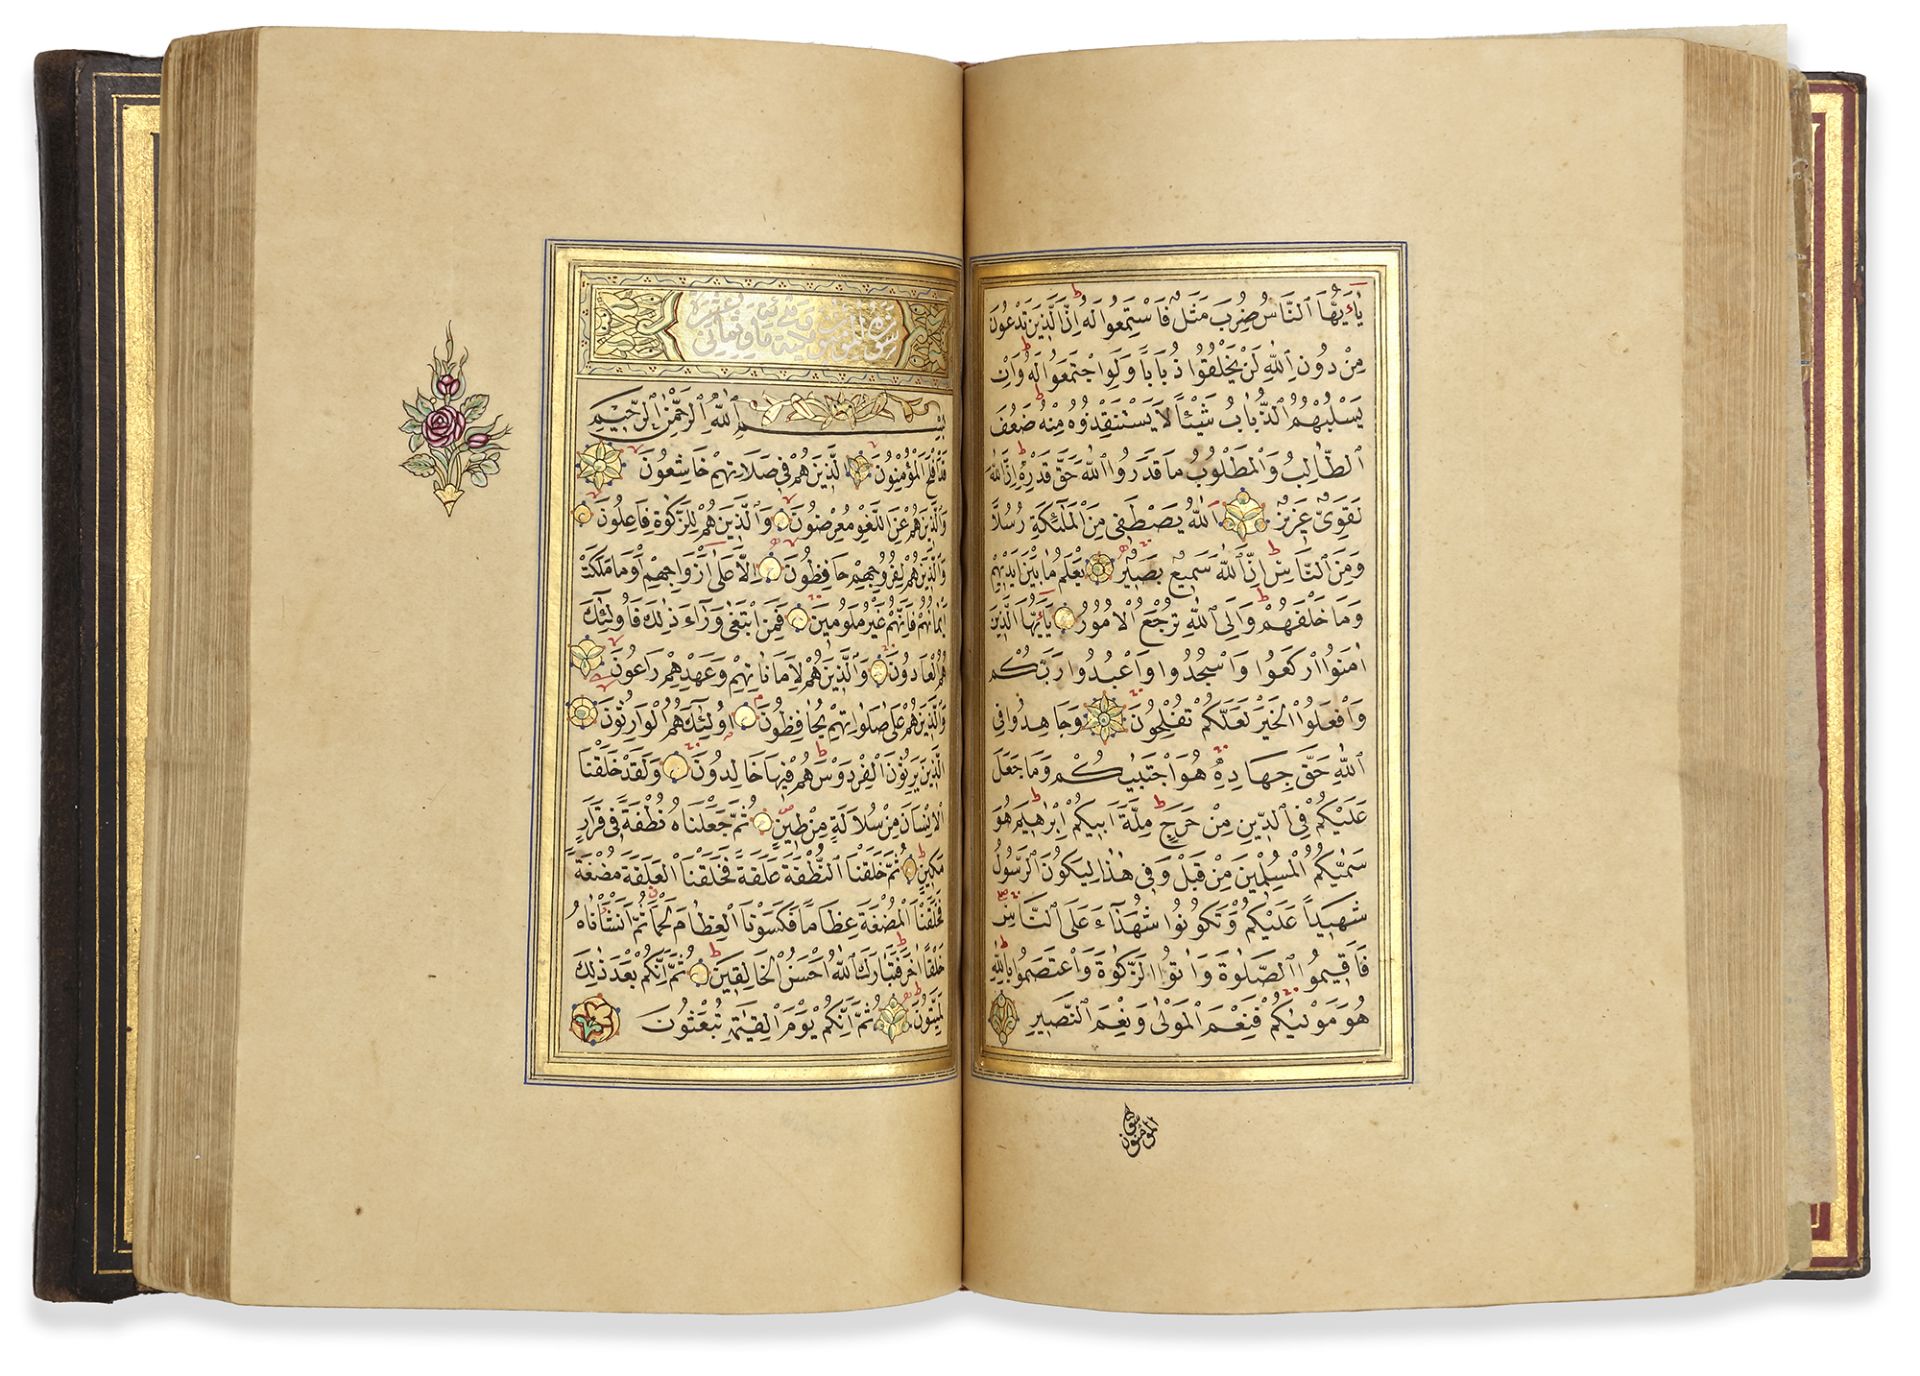 يَاأَيُّهَا النَّاسُ ضُرِبَ مَثَلٌ فَاسْتَمِعُوا لَهُ اِنَّ الَّذِينَ تَدْعُونَ
مِنْ دُونِ اللّٰهِ لَنْ يَخْلُقُوا ذُبَاباً وَلَوِ اجْتَمَعُوا لَهُ وَاِنْ
يَسْلُبْهُمُ الذُّبَابُ شَيْئاً لَا يَسْتَنْقِذُوهُ مِنْهُ ضَعُفَ
الطَّالِبُ وَالْمَطْلُوبُ مَا قَدَرُوا اللّٰهَ حَقَّ قَدْرِهِ اِنَّ اللّٰهَ
لَقَوِىٌّ عَزِيزٌ اَللّٰهُ يَصْطَفِى مِنَ الْمَلٰئِكَةِ رُسُلاً
وَمِنَ النَّاسِ اِنَّ اللّٰهَ سَمِيعٌ بَصِيرٌ يَعْلَمُ مَا بَيْنَ اَيْدِيهِمْ
وَمَا خَلْفَهُمْ وَاِلَى اللّٰهِ تُرْجَعُ الْاُمُورُ يَاأَيُّهَا الَّذِينَ
اٰمَنُوا ارْكَعُوا وَاسْجُدُوا وَاعْبُدُوا رَبَّكُمْ
وَافْعَلُوا الْخَيْرَ لَعَلَّكُمْ تُفْلِحُونَ وَجَاهِدُوا فِى
اللّٰهِ حَقَّ جِهَادِهِ هُوَ اجْتَبٰيكُمْ وَمَا جَعَلَ
عَلَيْكُمْ فِى الدِّينِ مِنْ حَرَجٍ مِلَّةَ اَبِيكُمْ اِبْرٰهِيمَ هُوَ
سَمّٰيكُمُ الْمُسْلِمِينَ مِنْ قَبْلُ وَفِى هٰذَا لِيَكُونَ الرَّسُولُ
شَهِيداً عَلَيْكُمْ وَتَكُونُوا شُهَدَاءَ عَلَى النَّاسِ
فَاَقِيمُوا الصَّلٰوةَ وَاٰتُوا الزَّكٰوةَ وَاعْتَصِمُوا بِاللّٰهِ
هُوَ مَوْلٰيكُمْ فَنِعْمَ الْمَوْلٰى وَنِعْمَ النَّصِيرُ
سورة
المؤمنون
بِسْمِ اللّٰهِ الرَّحْمٰنِ الرَّحِيمِ
قَدْ اَفْلَحَ الْمُؤْمِنُونَ اَلَّذِينَ هُمْ فِى صَلَاتِهِمْ خَاشِعُونَ
وَالَّذِينَ هُمْ عَنِ اللَّغْوِ مُعْرِضُونَ وَالَّذِينَ هُمْ لِلزَّكٰوةِ فَاعِلُونَ
وَالَّذِينَ هُمْ لِفُرُوجِهِمْ حَافِظُونَ اِلَّا عَلٰى اَزْوَاجِهِمْ اَوْ مَا مَلَكَتْ
اَيْمَانُهُمْ فَاِنَّهُمْ غَيْرُ مَلُومِينَ فَمَنِ ابْتَغٰى وَرَاءَ ذٰلِكَ فَاُولٰئِكَ
هُمُ الْعَادُونَ وَالَّذِينَ هُمْ لِاَمَانَاتِهِمْ وَعَهْدِهِمْ رَاعُونَ
وَالَّذِينَ هُمْ عَلٰى صَلَوَاتِهِمْ يُحَافِظُونَ اُولٰئِكَ هُمُ الْوَارِثُونَ
اَلَّذِينَ يَرِثُونَ الْفِرْدَوْسَ هُمْ فِيهَا خَالِدُونَ وَلَقَدْ خَلَقْنَا
الْاِنْسَانَ مِنْ سُلَالَةٍ مِنْ طِينٍ ثُمَّ جَعَلْنَاهُ نُطْفَةً فِى قَرَارٍ
مَكِينٍ ثُمَّ خَلَقْنَا النُّطْفَةَ عَلَقَةً فَخَلَقْنَا الْعَلَقَةَ مُضْغَةً
فَخَلَقْنَا الْمُضْغَةَ عِظَاماً فَكَسَوْنَا الْعِظَامَ لَحْماً ثُمَّ اَنْشَأْنَاهُ
خَلْقاً اٰخَرَ فَتَبَارَكَ اللّٰهُ اَحْسَنُ الْخَالِقِينَ ثُمَّ اِنَّكُمْ بَعْدَ ذٰلِكَ
لَمَيِّتُونَ ثُمَّ اِنَّكُمْ يَوْمَ الْقِيٰمَةِ تُبْعَثُونَ